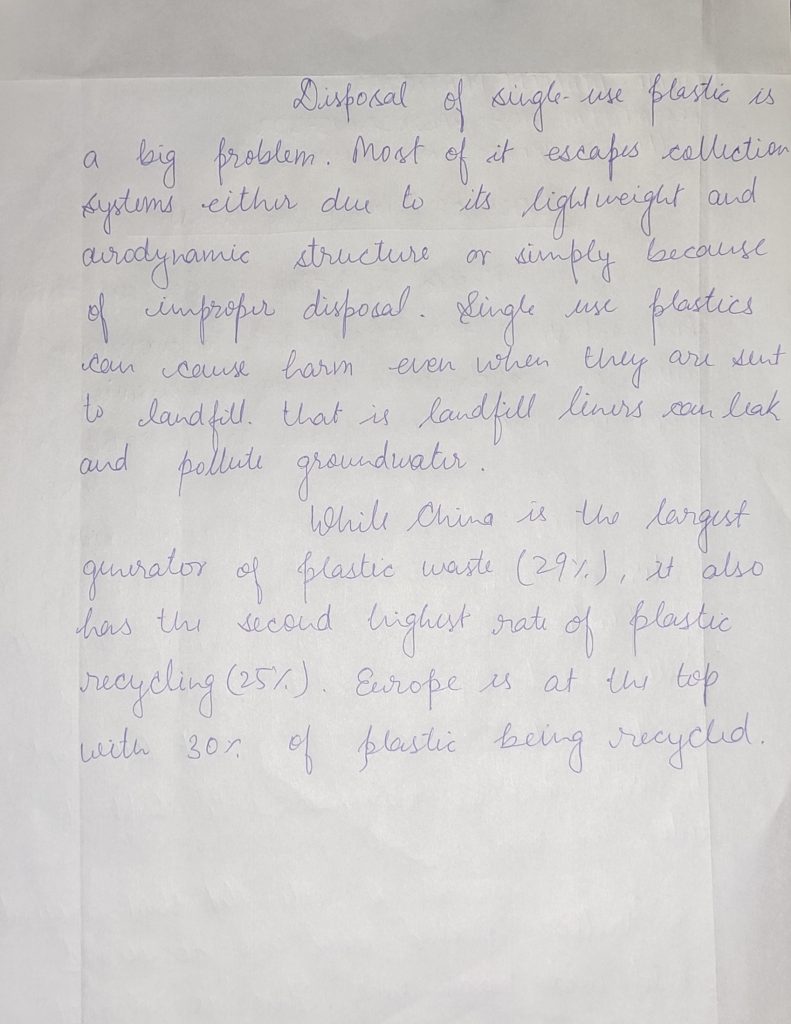 Disposal of single-use plastic is
a big problem. Most of it escapes collection
systems either due to its lightweight and
aerodynamic structure or simply because
of improper disposal. Single use plastics
can cause harm even when they are sent
to landfill. that is landfill liners can leak
and pollute groundwater.
While China is the largest
generator of plastic waste (29%), it also
has the second highest rate of plastic
recycling (25%). Europe is at the top
with 30% of plastic being recycled.